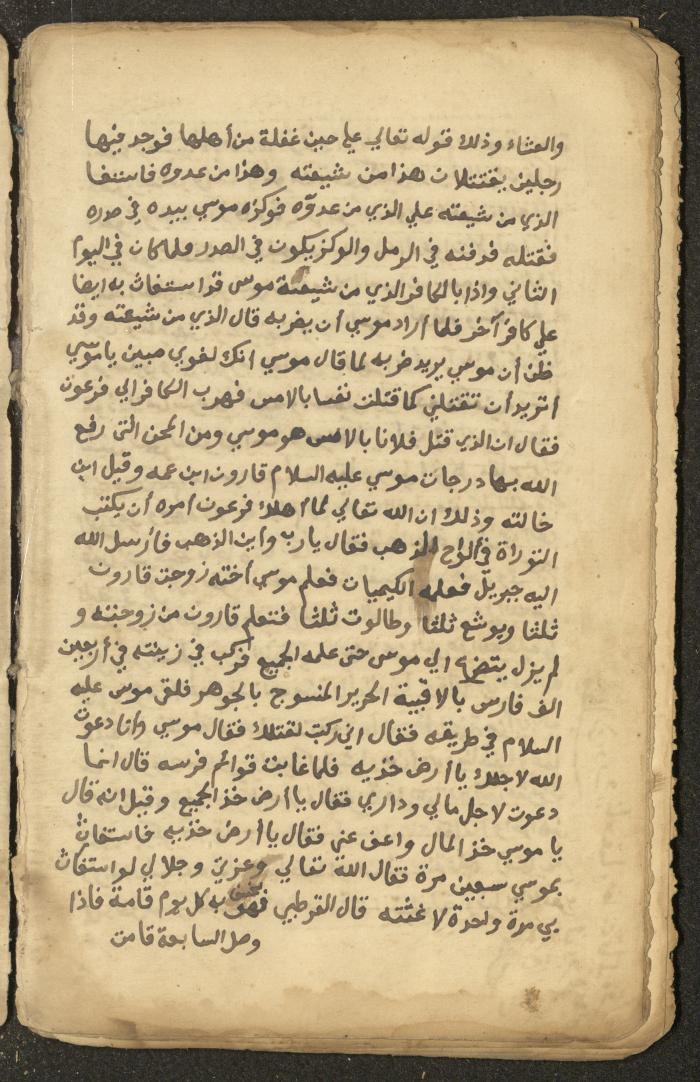 والعشاء وذلك قوله تعالي علي حين غفلة من أهلها فوجد فيها
رجلين يقتتلان هذا من شيعته وهذا من عدوه فاستغا
الذي من شيعته علي الذي من عدوّه فوكزه موسي بيده في صدره
فقتله فدفنه في الرمل والوكز يكون في الصدر فلما كان في اليوم
الثاني واذا بالكافر الذي من شيعة موسى قد استغاث به ايضا
علي كافر آخر فلما أراد موسي أن يضربه قال الذي من شيعته وقد
ظن أن موسي يريد ضربه لما قال موسي انك لغوي مبين ياموسي
أتريد أن تقتلني كما قتلت نفسا بالامس فهرب الكافر الي فرعون
فقال ان الذي قتل فلانا بالامس هو موسي ومن المحن التي رفع
الله بها درجات موسي عليه السلام قارون ابن عمه وقيل ابن
خالته وذلك ان الله تعالي لما أهلك فرعون أمره أن يكتب
التوراة في ألواح الذهب فقال يارب وأين الذهب فأرسل الله
اليه جبريل فعلمه الكيميات فعلم موسي أخته زوجت قارون
ثلثا ويوشع ثلثا وطالوت ثلثا فتعلم قارون من زوجته و
لم يزل الي موسى حتى علمه الجميع فركب في زينته في أربعين
الف فارس بالاقبية الحرير المنسوج بالجوهر فلقي موسى عليه
السلام في طريقه فقال اني ركبت لقتلك فقال موسي وانا دعوت
الله لاجلك يا أرض خذيه فلما غابت قوائم فرسه قال انما
دعوت لاجل مالي وداري فقال يا أرض خذ الجميع وقيل انه قال
يا موسي خذ المال واعف عني فقال يا أرض خذيه فاستغاث
بموسي سبعين مرة فقال الله تعالي وعزتي وجلالي لو استغاث
بي مرة واحدة لاغثته قال القرطبي فهو يخسف به كل يوم قامة فاذا
وصل السابعة قامت